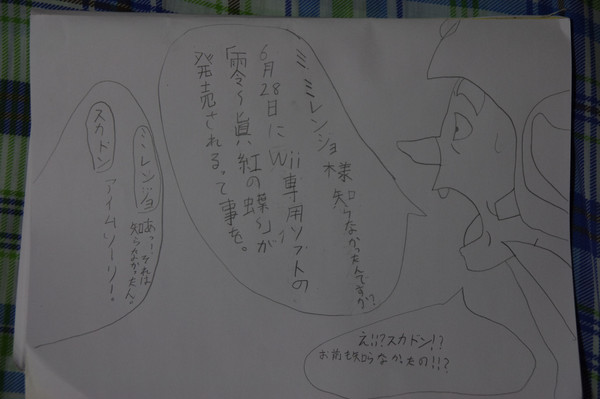 ミレンジョ様知らなかったんですか?
6月28日にWii専用ソフトの
「零〜眞紅の蝶〜」が
発売されるって事を。
え!!?スカドン!?
お前も知らなかったの!!?
ミレンジョ あっ!それは
知らなかったん。
スカドン アイムソーリー!